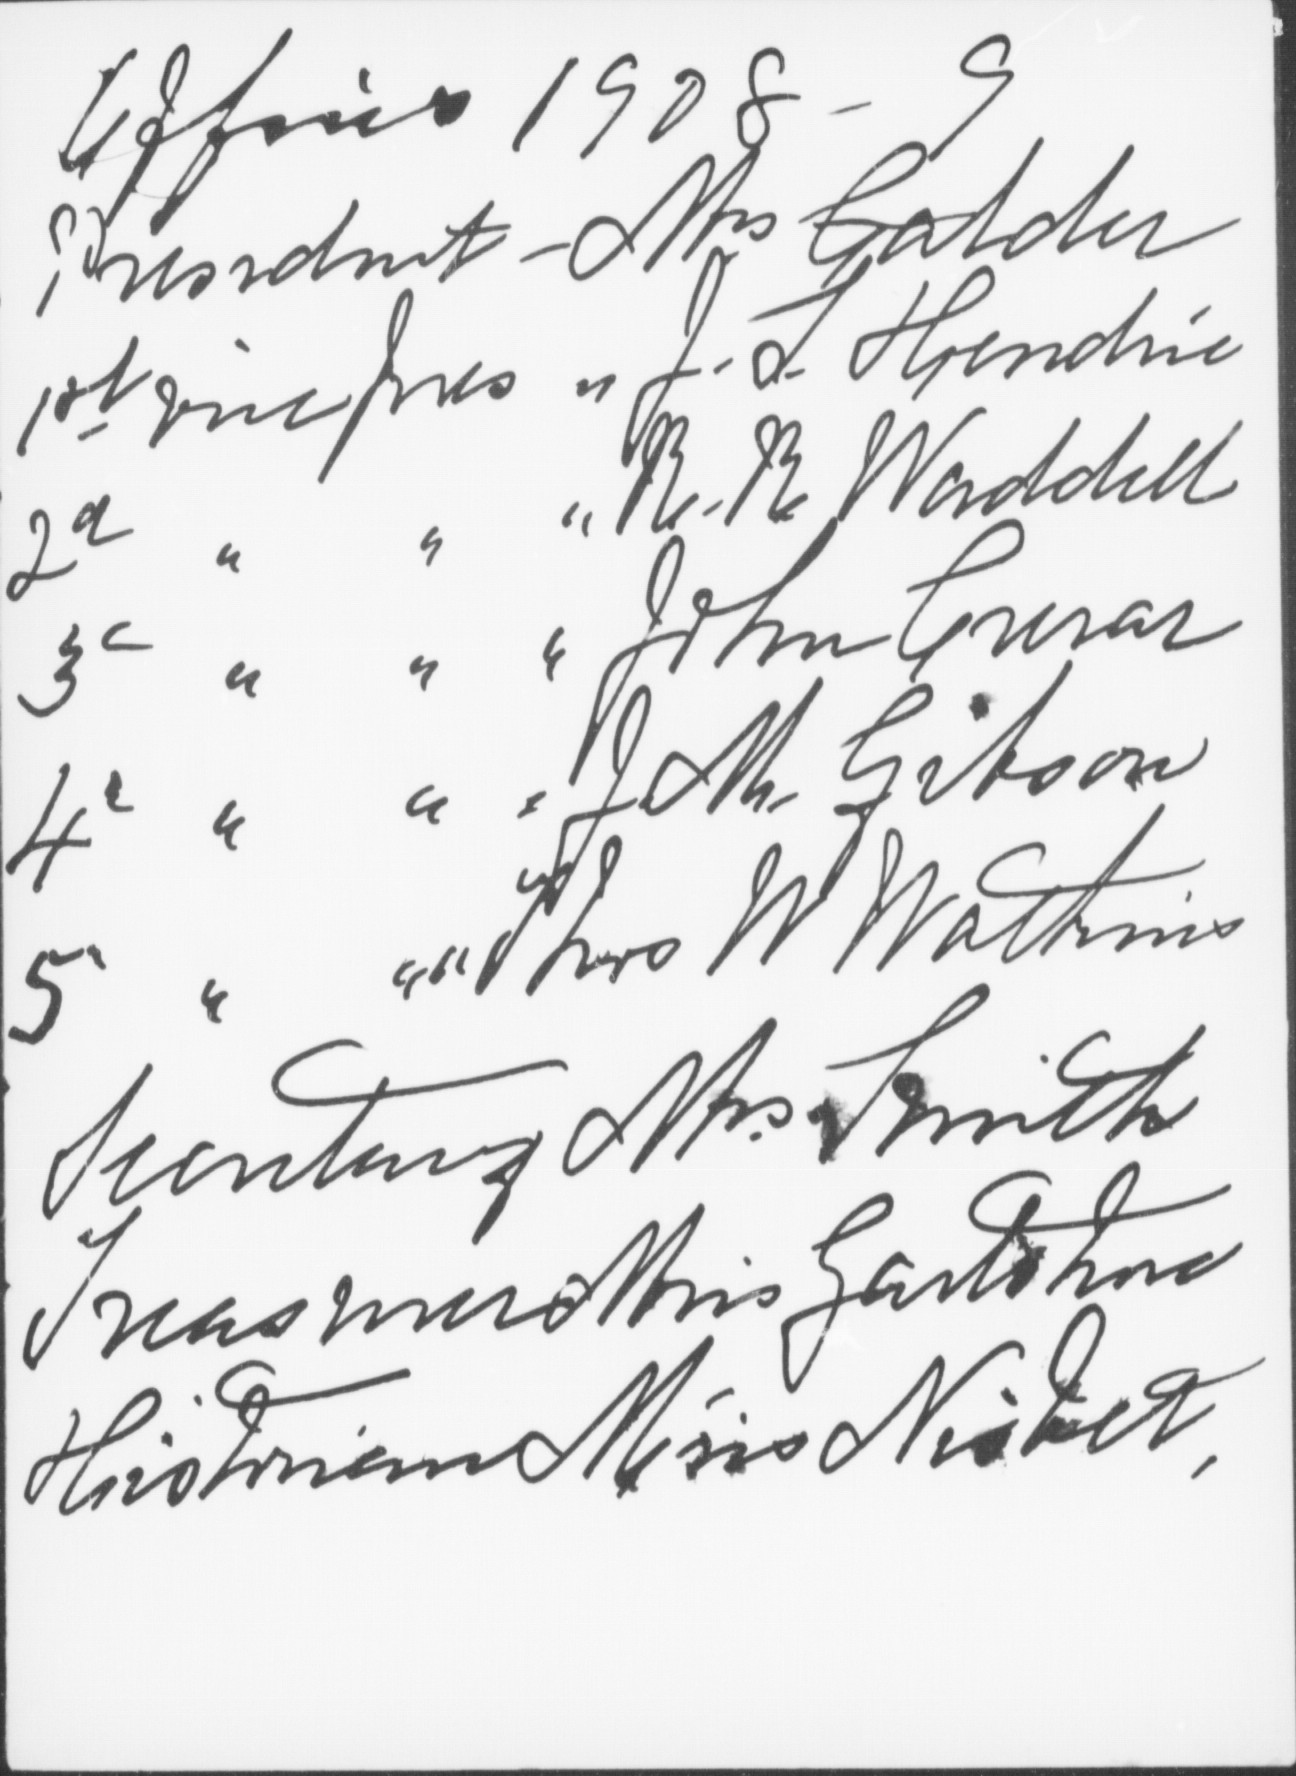 Officers 1908-9
President - Mrs Calder
1st vice pres " J. S. Hendrie
2d " " " R. R. Waddell
3d " " " John Crerar
4th " " " J. M. Gibson
5th " " " Thos W Watkins
Secretary Mrs. Smith
Treasurer Miss Gartshore
Historian Miss Nisbet,